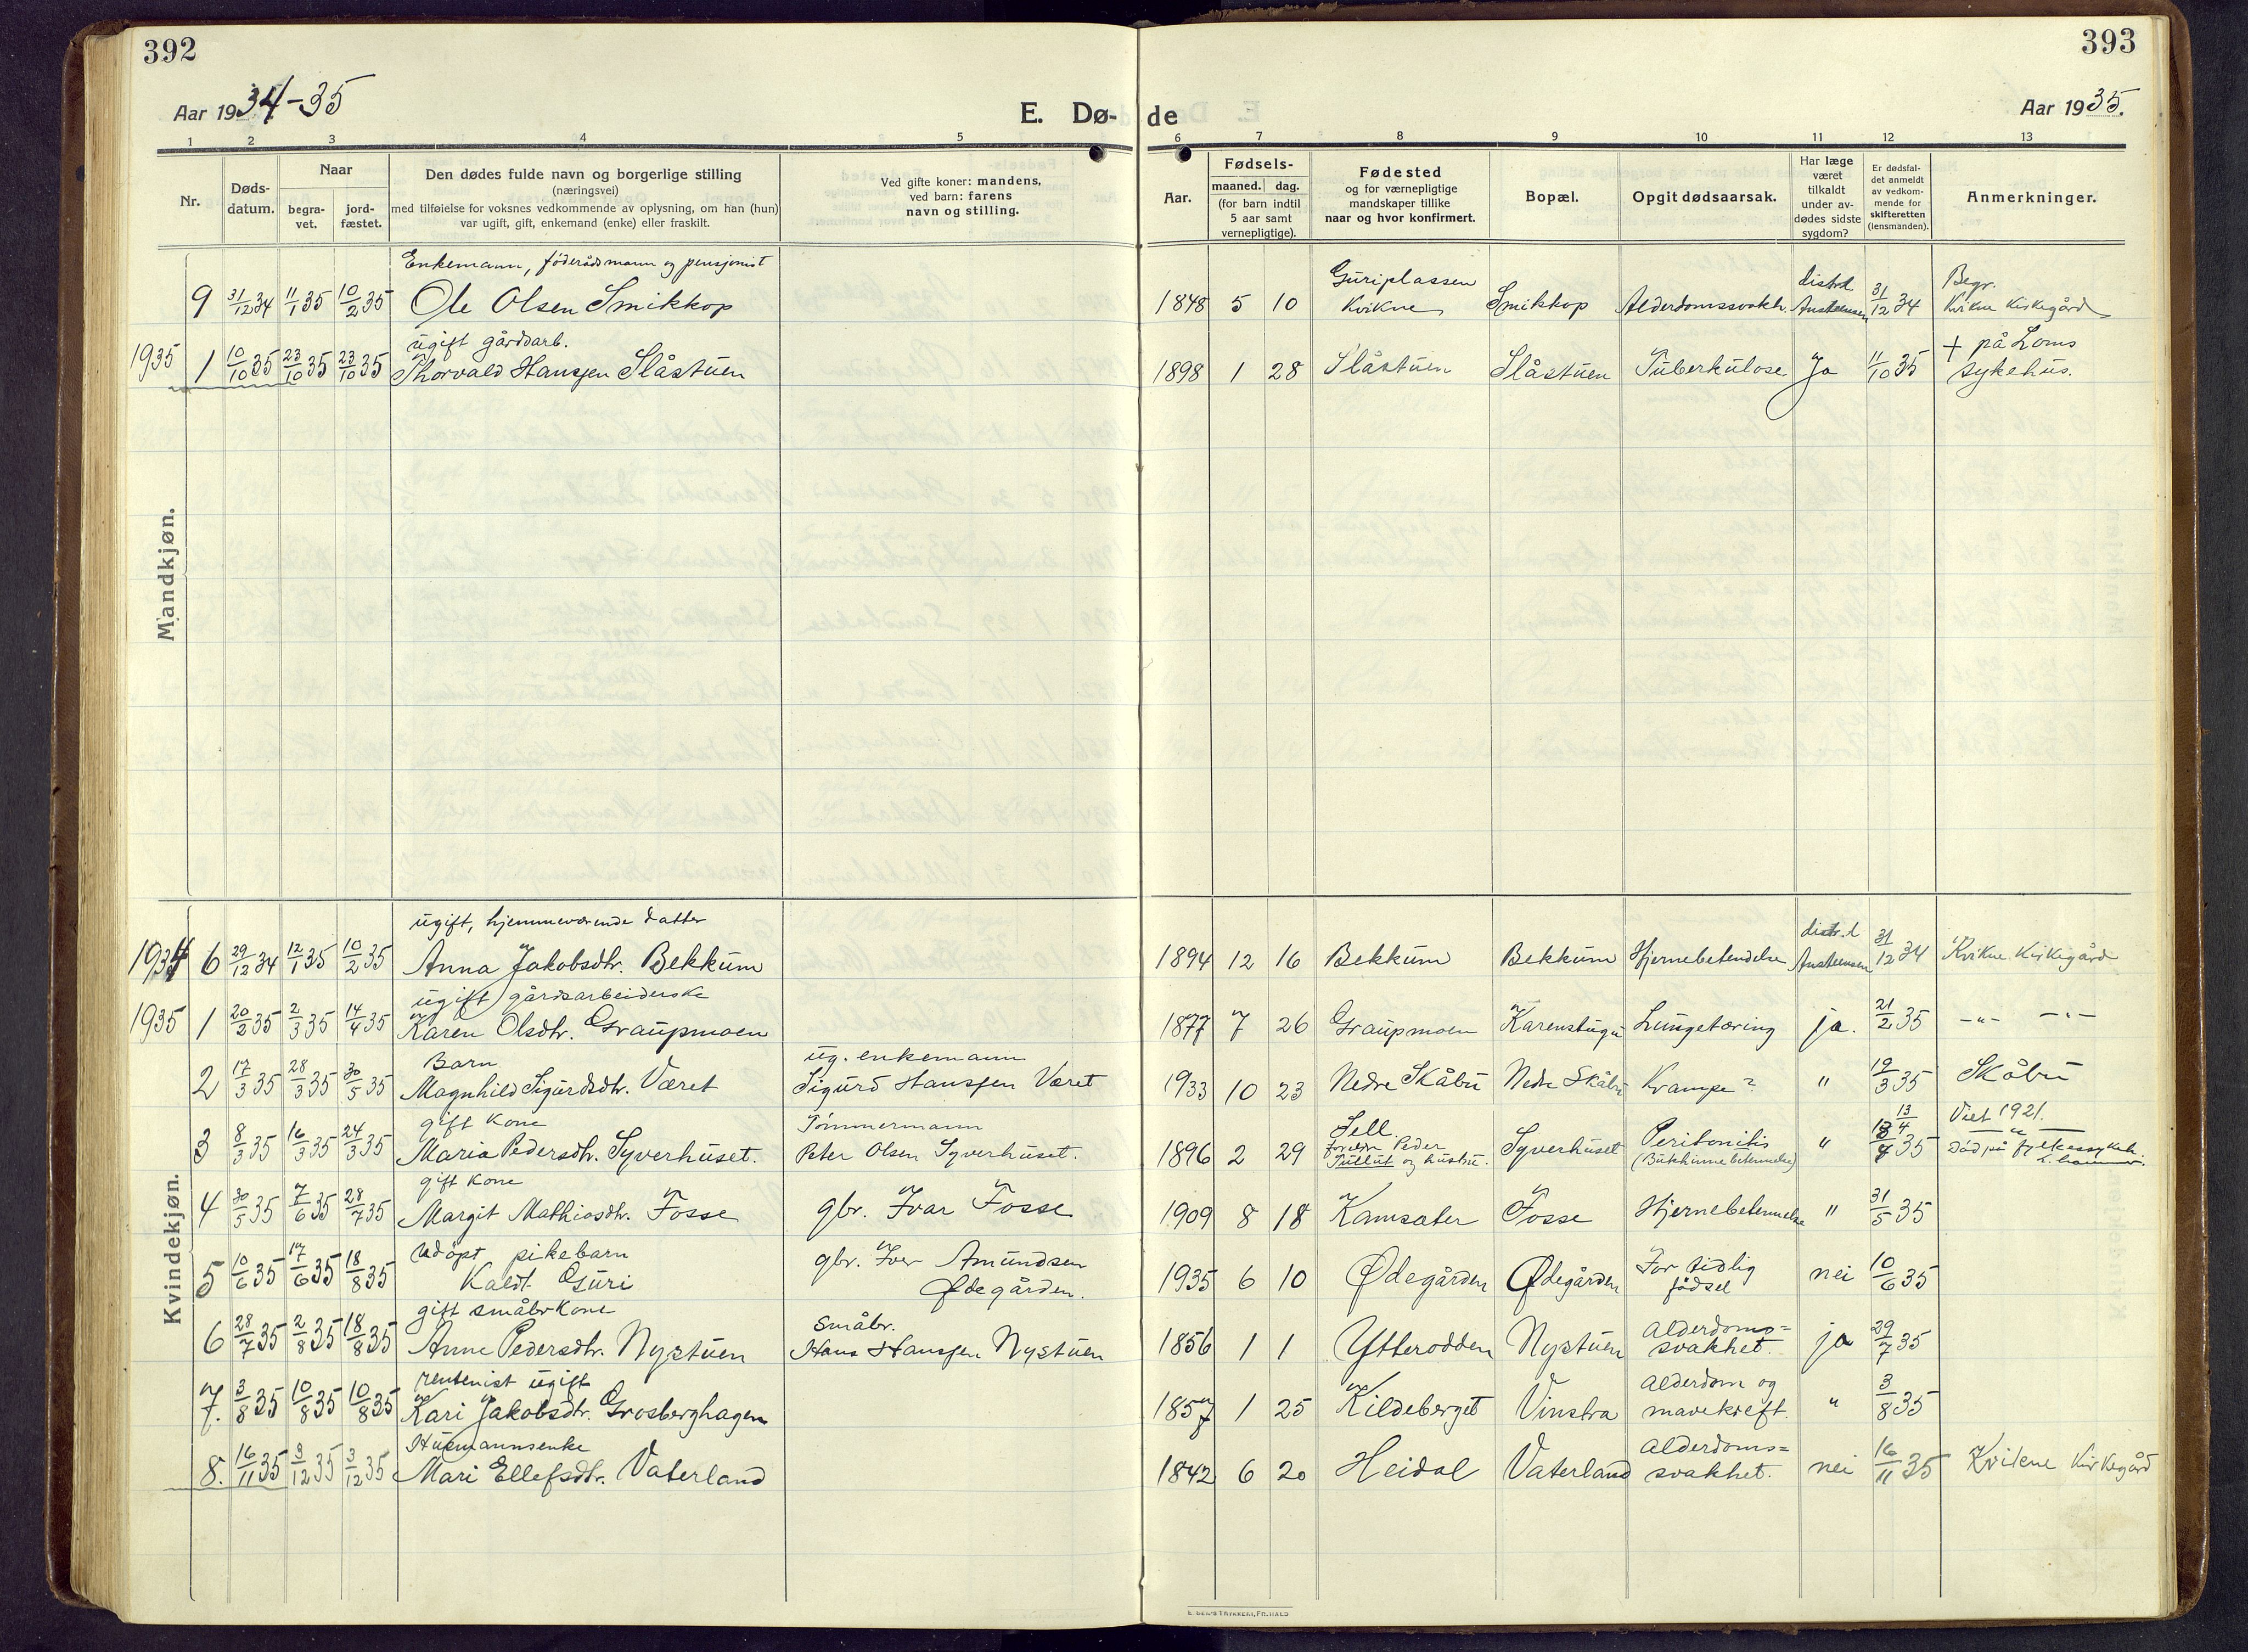 392
393
Aar 1934-35
E. Dø-
de
Aar 1935.
1 2 3 4 5 6 7 8 9 10 11 12 13
Nr.
Døds-
datum.
Naar
begra-
vet.
jord-
fæstet.
Den dødes fulde navn og borgerlige stilling
(næringsvei)
med tilføielse for voksnes vedkommende av oplysning, om han (hun)
var ugift, gift, enkemand (enke) eller fraskilt.
Ved gifte koner: mandens,
ved barn: farens
navn og stilling.
Aar.
Fødsels-
maaned. dag.
(for barn indtil
5 aar samt
vernepligtige).
Fødested
og for værnepligtige
mandskaper tillike
naar og hvor konfirmert.
Bopæl.
Opgit dødsaarsak.
Har læge
været
tilkaldt
under av-
dødes sidste
sygdom?
Er dødsfal-
det anmeldt
av vedkom-
mende for
skifteretten
(lensmanden).
Anmerkninger.
Mandkjøn.
Enkemann, föderådsmann og pensjonist
Guriplassen distr.l Begr.
9 31/12 34 11/1 35 10/2 35 Ole Olsen Smikkop 1848 5 10 Kvikne Smikkop Alderdomssvakh. Austeensen 31/12 34 Kvikne Kirkegård
ugift gårdarb. + på Loms
1935 1 10/10 35 23/10 35 23/10 35 Thorvald Hanssen Slåstuen 1898 1 28 Slåstuen Slåstuen Tuberkulose Ja 11/10 35 sykehus.
Kvindekjøn.
ugift, hjemmeværende datter distr.l
1934 6 29/12 34 12/1 35 10/2 35 Anna Jakobsdtr. Bekkum 1894 12 16 Bekkum Bekkum Hjernebetendelse Austeensen 31/12 34 Kvikne Kirkegård
ugift gårdsarbeiderske
1935 1 20/2 35 2/3 35 14/4 35 Karen Olsdtr. Graupmoen 1877 7 26 Graupmoen Karenstugu Lungetæring ja. 21/2 35 -"- -"-
Barn ug. enkemann
2 17/3 35 28/3 35 30/5 35 Magnhild Sigurdsdtr. Været Sigurd Hanssen Været 1933 10 23 Nedre Skåbu Nedre Skåbu Krampe? " 19/3 35 Skåbu
gift Kone Tömmermann Sell. 13/4 Viet 1921.
3 8/3 35 16/3 35 24/3 35 Maria Pedersdtr. Syverhuset. Peter Olsen Syverhuset. 1896 2 29 Peder og hustru. Syverhuset Peritonitis (Bukhinnebetennelse) " 35 Död på fylkessykeh.
gift Kone
4 30/5 35 7/6 35 28/7 35 Margit Mathiasdtr. Fosse gbr. Ivar Fosse 1909 8 18 Kamsæter Fosse Hjernebetennelse " 31/5 35
Udöpt pikebarn gbr. Iver Amundsen For tidlig
5 10/6 35 17/6 35 18/8 35 Kaldt Guri Ødegården. 1935 6 10 Ødegården Ødegården födsel nei 10/6 35
gift småbrKone Småbr. Alderdoms=
6 28/7 35 2/8 35 18/8 35 Anne Pedersdtr. Nystuen Hans Hanssen Nystuen 1856 1 1 Ytterodden Nystuen svakhet. ja 29/7 35
rentenist ugift Alderdom og
7. 3/8 35 10/8 35 10/8 35 Kari Jakobsdtr. Grosberghagen 1857 1 25 Kildeberget Vinstra mavekreft. " 3/8 35
Husmannsenke Alderdoms=
8. 16/11 35 3/12 35 3/12 35 Mari Ellefsdtr. Vaterland 1842 6 20 Heidal Vaterland svakhet. nei 16/11 35 Kvikne Kirkegård